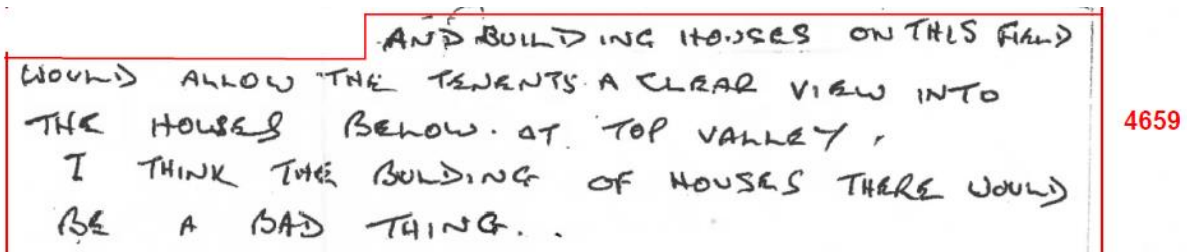 AND BUILDING HOUSES ON THIS FIELD
WOULD ALLOW THE TENENTS A CLEAR VIEW INTO
THE HOUSES BELOW. AT TOP VALLEY,
I THINK THE BULDING OF HOUSES THERE WOULD
BE A BAD THING..
4659